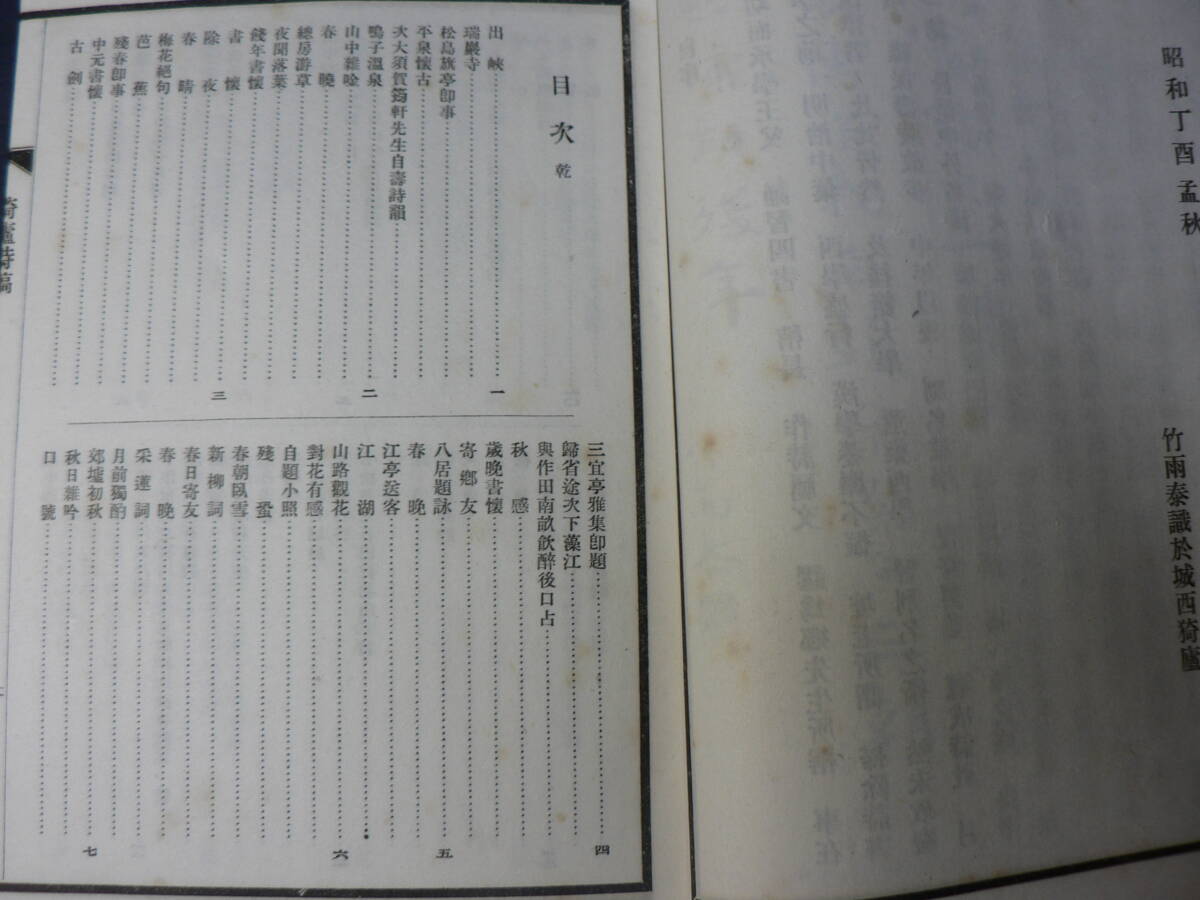 昭和丁酉孟秋
竹雨泰識於城西猗廬
目次 乾
出峽 一
瑞巖寺
松島旗亭卽事
平泉懷古
次大須賀筠軒先生自壽詩韻
鳴子溫泉 二
山中雜唫
春曉
總房游草
夜聞落葉
餞年書懷
書懷
除夜 三
春晴
梅花絕句
芭蕉
殘春卽事
中元書懷
古劍
三宜亭雅集卽題 四
歸省途次下藻江
與作田南畝飮醉後口占
秋感
歲晚書懷
寄鄕友
八居題詠 五
春晚
江亭送客
江湖
山路觀花 六
對花有感
自題小照
殘蛩
春朝臥雪
新柳詞
春日寄友
春晚
采蓮詞
月前獨酌
郊墟初秋 七
秋日雜吟
口號
猗廬詩稿